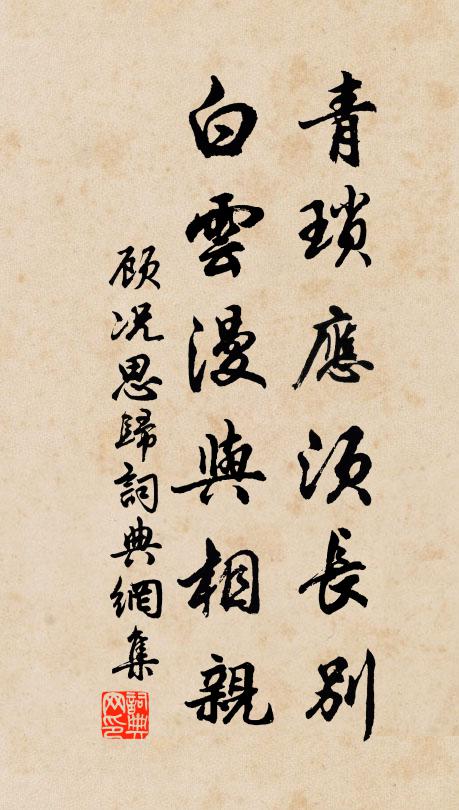 青瑣應須長別
白雲漫與相親
顾况思歸詞典網集
詞典网印